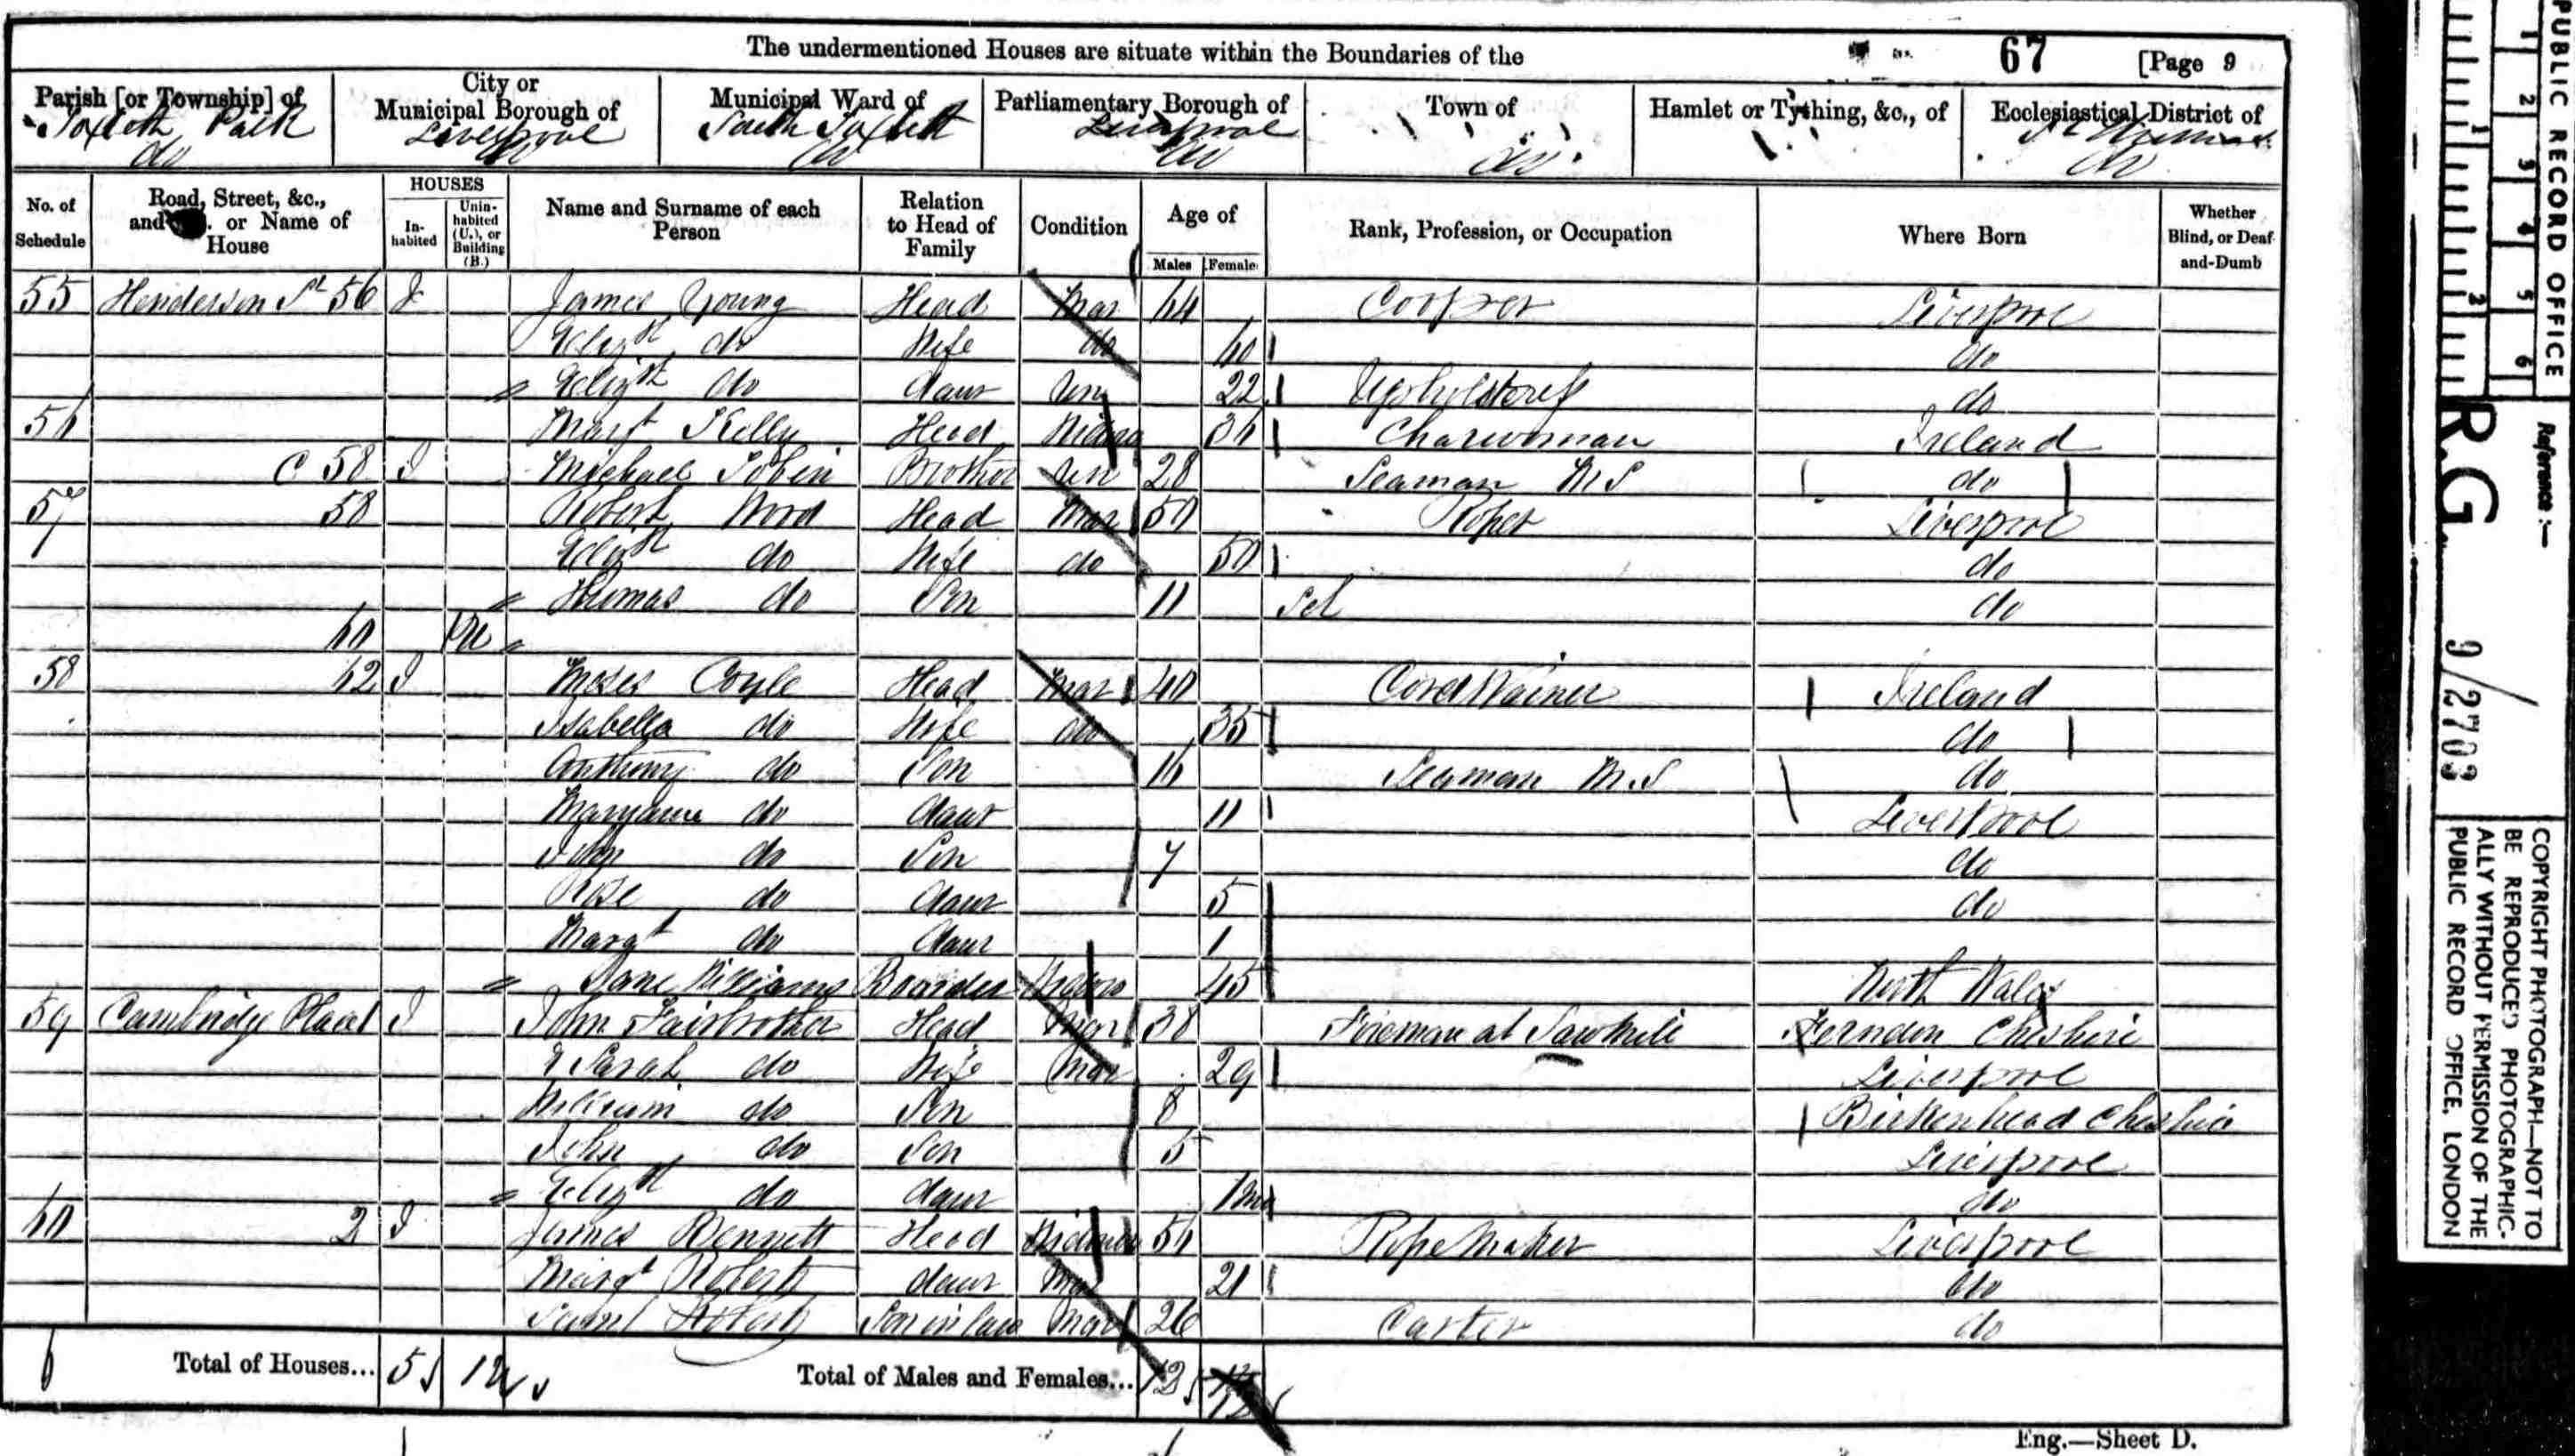 The undermentioned Houses are situate within the Boundaries of the 67 [Page 9
Parish [or Township] of City or Municipal Borough of Municipal Ward of Parliamentary Borough of Town of Hamlet or Tything, &c., of Ecclesiastical District of
Toxteth Park Liverpool South Toxteth Liverpool
do do do do do do
No. of Schedule Road, Street, &c., and . or Name of House HOUSES In-habited Unin-habited (U.), or Building (B.) Name and Surname of each Person Relation to Head of Family Condition Age of Males Female Rank, Profession, or Occupation Where Born Whether Blind, or Deaf-and-Dumb
55 Henderson St 56 I James Young Head Mar 44 Cooper Liverpool
Elizth do Wife do 40 do
Elizth do daur Un 22 Upholsteress do
56 Margt Kelly Head Widow 36 Charwoman Ireland
C 58 I Michael Tobin Brother Un 28 Seaman M S do
57 58 Robert Word Head Mar 50 Roper Liverpool
Elizth do Wife do 50 do
Thomas do Son 11 Scl do
60 1U
58 62 I Moses Coyle Head Mar 40 CordWainer Ireland
Isabella do Wife do 35 do
Anthony do Son 16 Seaman M.S do
Maryanne do daur 11 Liverpool
John do Son 7 do
Rose do daur 5 do
Margt do daur 1
Jane Williams Boarder Widow 45 North Wales
59 Cambridge Place 1 I John Fairbrother Head Mar 38 Foreman at Sawmill Cheshire
Sarah do Wife Mar 29 Liverpool
William do Son 8 Birkenhead Cheshire
John do Son 5 Liverpool
Elizth do daur 1 mo do
60 2 I James Bennett Head Widower 56 Rope Maker Liverpool
Margt Roberts daur Mar 21 do
Saml Roberts Son in law Mar 26 Carter do
6 Total of Houses... 5 1U Total of Males and Females... 12 12
Eng.—Sheet D.
PUBLIC RECORD OFFICE
1 2 3 4 5 6
Reference :—
R.G. 9/2703
COPYRIGHT PHOTOGRAPH—NOT TO BE REPRODUCED PHOTOGRAPHIC-ALLY WITHOUT PERMISSION OF THE PUBLIC RECORD OFFICE, LONDON